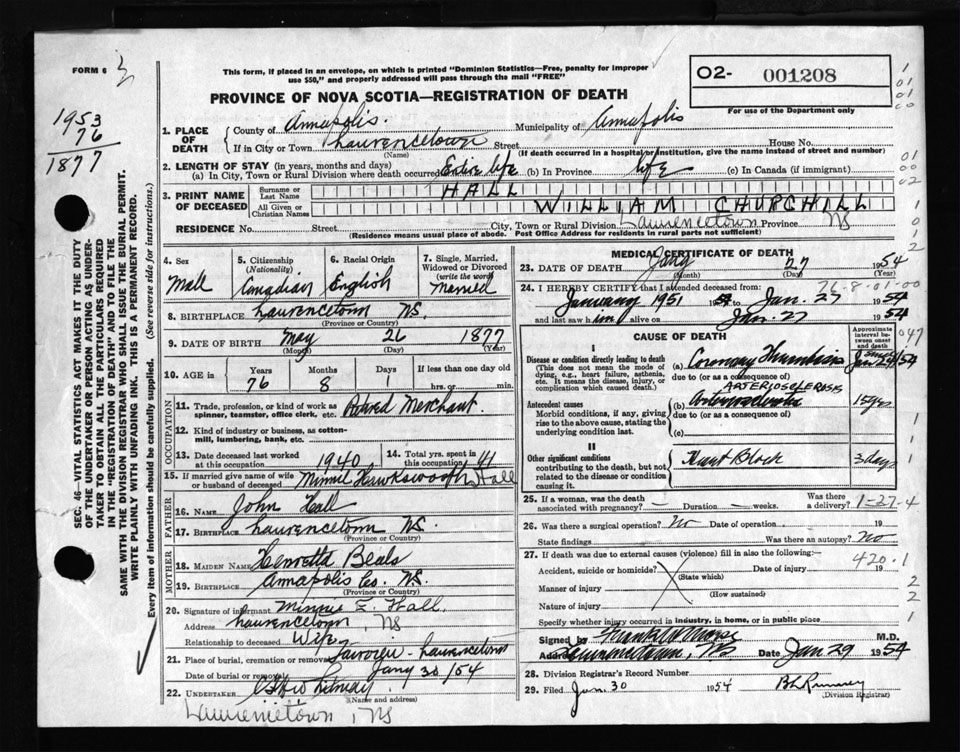 FORM 6 3
This form, if placed in an envelope, on which is printed "Dominion Statistics—Free, penalty for improper
use $50," and properly addressed will pass through the mail "FREE"
O2- 001208
For use of the Department only
PROVINCE OF NOVA SCOTIA—REGISTRATION OF DEATH
1953
76
1877
1. PLACE OF DEATH County of Annapolis. Municipality of Annapolis
If in City or Town Laurencetown Street House No.
(Name) (If death occurred in a hospital or institution, give the name instead of street and number)
2. LENGTH OF STAY (in years, months and days)
(a) In City, Town or Rural Division where death occurred Entire life (b) In Province life (c) In Canada (if immigrant)
3. PRINT NAME OF DECEASED Surname or Last Name HALL
All Given or Christian Names WILLIAM CHURCHILL
RESIDENCE No. Street City, Town or Rural Division Lawrencetown Province NS
(Residence means usual place of abode. Post Office Address for residents in rural parts not sufficient)
SEC. 46—VITAL STATISTICS ACT MAKES IT THE DUTY
OF THE UNDERTAKER OR PERSON ACTING AS UNDER-
TAKER TO OBTAIN ALL THE PARTICULARS REQUIRED
IN THE "REGISTRATION OF DEATH" AND TO FILE THE
SAME WITH THE DIVISION REGISTRAR WHO SHALL ISSUE THE BURIAL PERMIT.
WRITE PLAINLY WITH UNFADING INK. THIS IS A PERMANENT RECORD.
Every item of information should be carefully supplied. (See reverse side for instructions.)
4. Sex Male
5. Citizenship (Nationality) Canadian
6. Racial Origin English
7. Single, Married, Widowed or Divorced (write the word) Married
8. BIRTHPLACE Laurencetown NS.
(Province or Country)
9. DATE OF BIRTH May 26 1877
(Month) (Day) (Year)
10. AGE Years 76 Months 8 Days 1 If less than one day old hrs. or min.
OCCUPATION
11. Trade, profession, or kind of work as spinner, teamster, office clerk, etc. Retired Merchant.
12. Kind of industry or business, as cotton-mill, lumbering, bank, etc.
13. Date deceased last worked at this occupation 1940
14. Total yrs. spent in this occupation 41
15. If married give name of wife or husband of deceased Hall
FATHER
16. NAME John Hall
17. BIRTHPLACE Laurencetown NS.
(Province or Country)
MOTHER
18. MAIDEN NAME Henretta Beals
19. BIRTHPLACE Annapolis Co. NS.
(Province or Country)
20. Signature of informant Minnie E. Hall.
Address Laurencetown, NS
Relationship to deceased Wife
21. Place of burial, cremation or removal - Laurencetown
Date of burial or removal Jany 30/54
22. UNDERTAKER
(Name and address)
Lawrencetown, NS
MEDICAL CERTIFICATE OF DEATH
23. DATE OF DEATH Jany 27 1954
(Month) (Day) (Year)
24. I HEREBY CERTIFY that I attended deceased from: 76-8-01-00
January 1951 to Jan. 27 1954
and last saw him alive on Jan. 27 1954
CAUSE OF DEATH
Approximate interval between onset and death
I
Disease or condition directly leading to death
(This does not mean the mode of dying, e.g., heart failure, asthenia, etc. It means the disease, injury, or complication which caused death.)
(a) Coronary Thrombosis
due to (or as a consequence of)
ARTERIOSCLEROSIS
Antecedent causes
Morbid conditions, if any, giving rise to the above cause, stating the underlying condition last.
(b) 15 yrs
due to (or as a consequence of)
(c)
II
Other significant conditions
contributing to the death, but not related to the disease or condition causing it.
Heart Block 3 days
25. If a woman, was the death associated with pregnancy? — Duration — weeks. Was there a delivery? 1-27-4
26. Was there a surgical operation? No Date of operation 19
State findings Was there an autopsy? No
27. If death was due to external causes (violence) fill in also the following:— 420.1
Accident, suicide or homicide? Date of injury 19
(State which)
Manner of injury
(How sustained)
Nature of injury
Specify whether injury occurred in industry, in home, or in public place
Signed by Frank W. Morse M.D.
Address Lawrencetown, NS Date Jan 29 1954
28. Division Registrar's Record Number
29. Filed Jan. 30 1954
(Division Registrar)